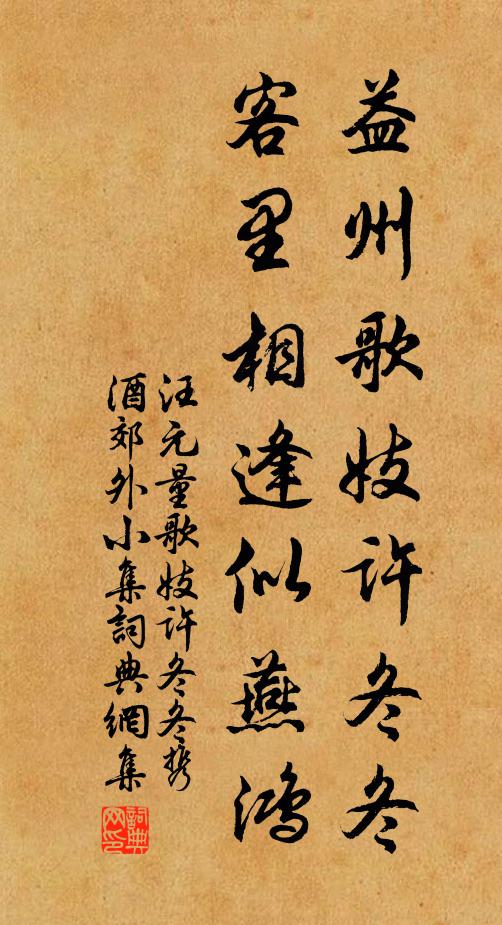 益州歌妓许冬冬
客里相逢似燕鸿
汪元量歌妓许冬冬携
酒郊外小集詞典網集
詞典网印